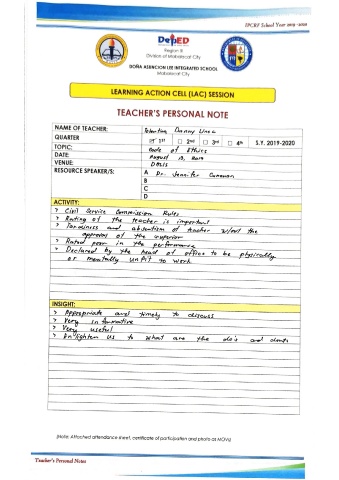 IPCRF School Year 2019-2020
DepED
Region III
Division of Mabalacat City
DOÑA ASENCION LEE INTEGRATED SCHOOL
Mabalacat City
LEARNING ACTION CELL (LAC) SESSION
TEACHER'S PERSONAL NOTE
NAME OF TEACHER: Danny
QUARTER ☑ 1st ☐ 2nd ☐ 3rd ☐ 4th S.Y. 2019-2020
TOPIC: Code of Ethics
DATE: August 13, 2019
VENUE: DALIS
RESOURCE SPEAKER/S: A Dr. Jennifer
B
C
D
ACTIVITY:
> Civil Service Commission Rules
> Rating of the teacher is important
> Tardiness and absentism of teacher w/out the
approval of the superior
> Rated poor in the performance
> Declared by the head of office to be physically
or mentally unfit to work
INSIGHT:
> Appropriate and timely to discuss
> Very informative
> Very useful
> Enlighten us to what are the do's and donts
(Note: Attached attendance sheet, certificate of participation and photo as MOVs)
Teacher's Personal Notes